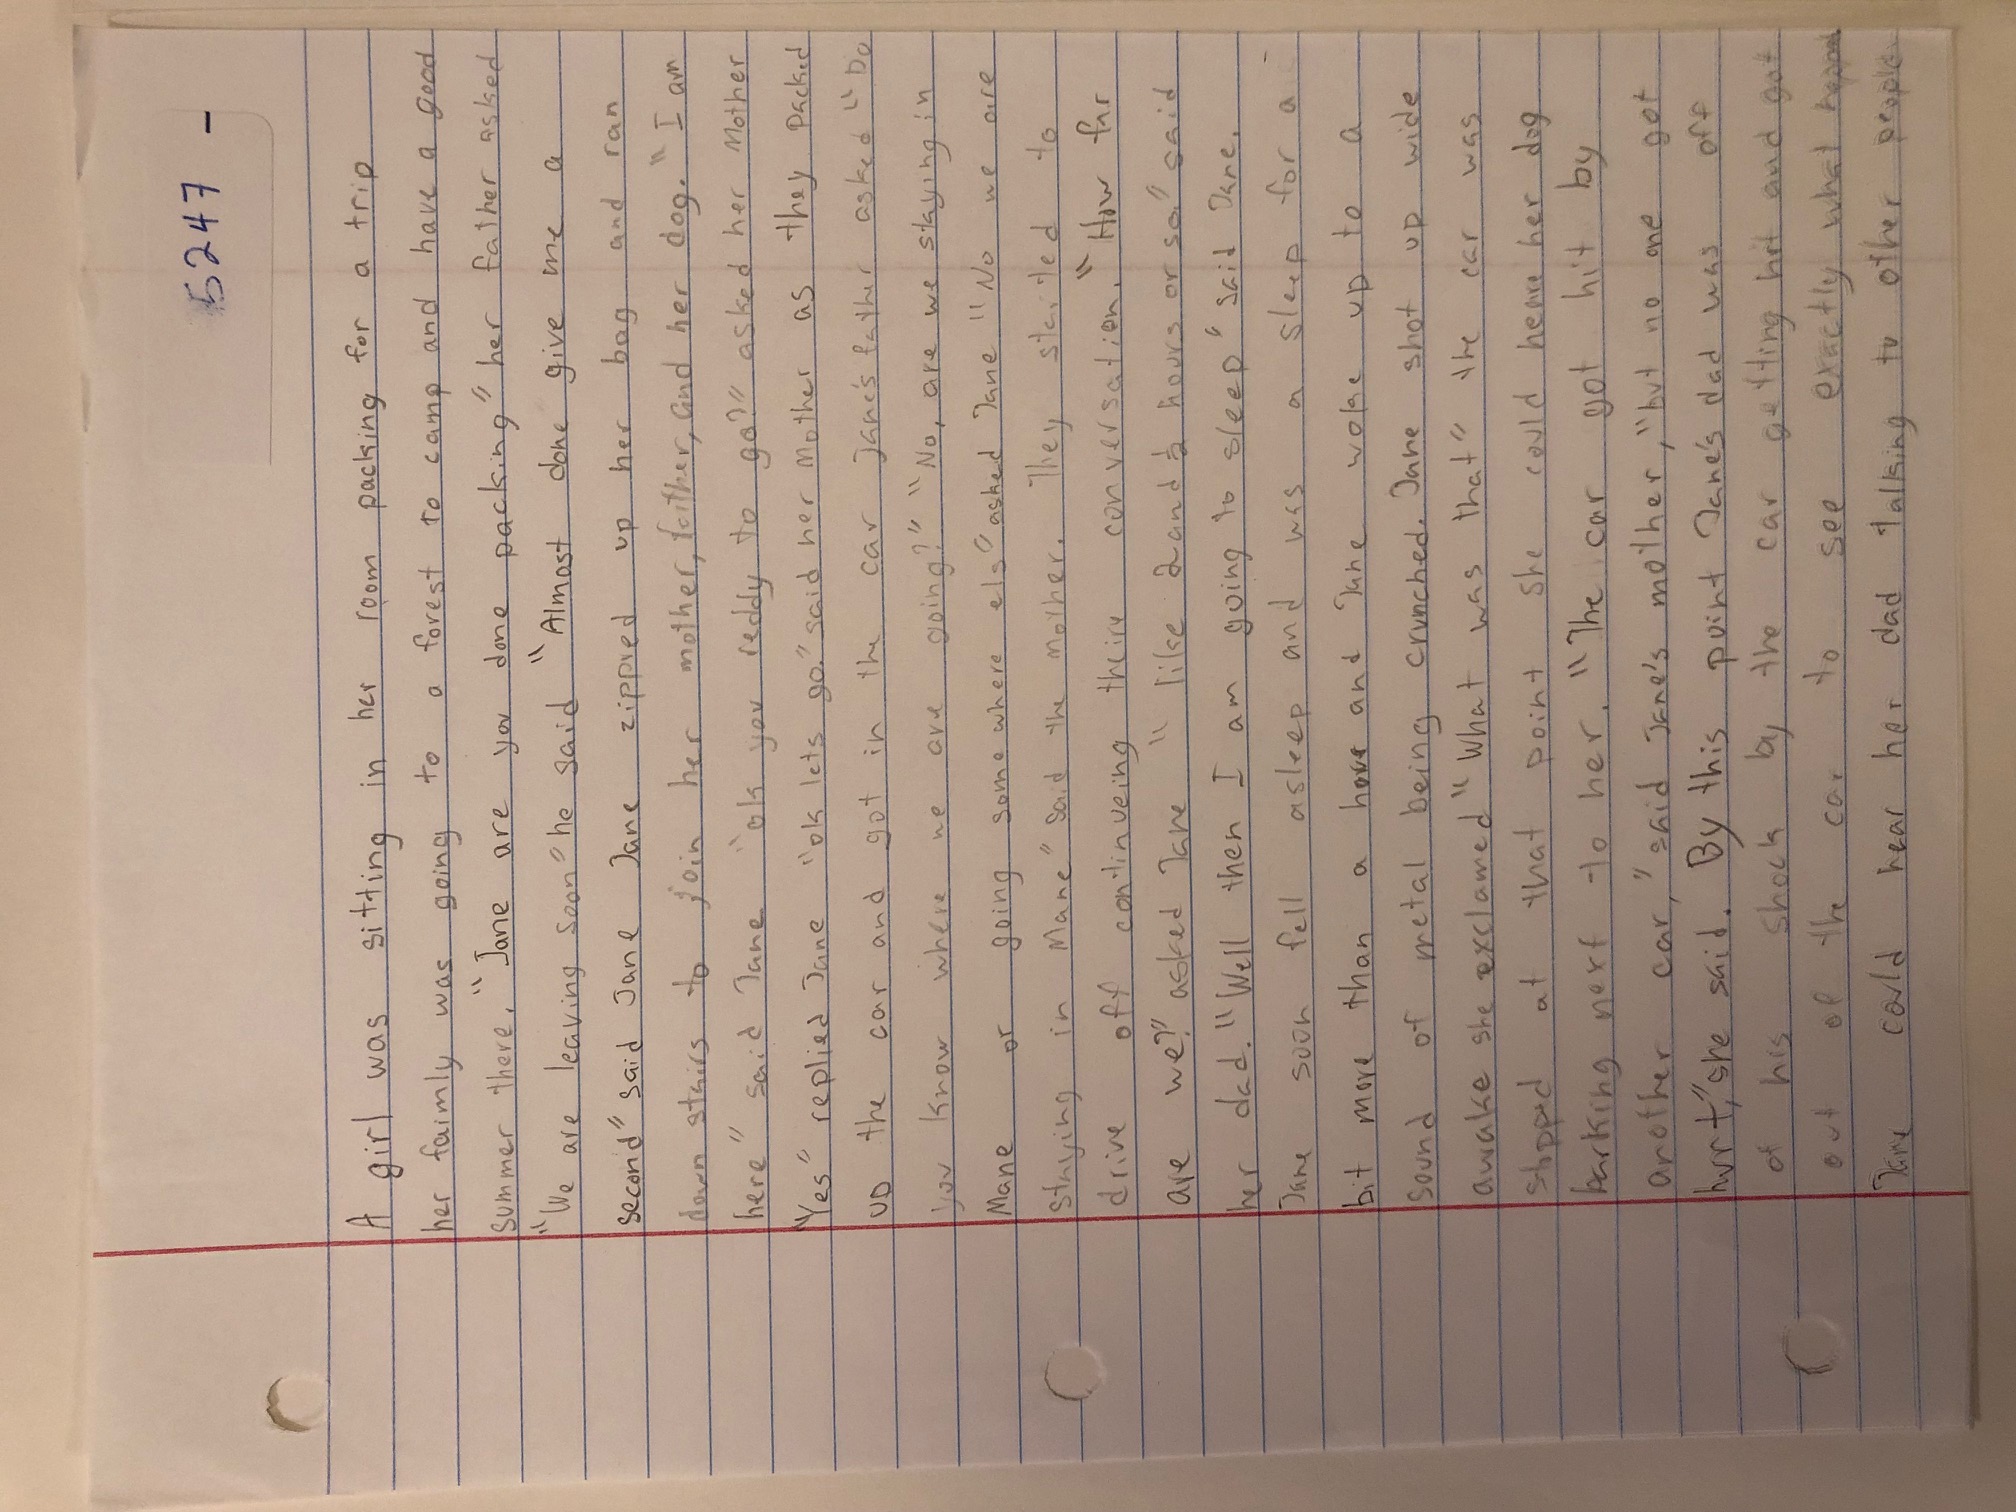 5247 -
A girl was sitting in her room packing for a trip
her faimly was going to a forest to camp and have a good
summer there. "Jane are you done packing" her father asked
"We are leaving soon" he said "Almost done give me a
second" said Jane Jane zippred up her bag and ran
down stairs to join her mother, faither, and her dog. "I am
here" said Jane "ok you reddy to go?" asked her Mother
"Yes" replied Jane "ok lets go." said her Mother as they packed
up the car and got in the car Jane's father asked "Do
you know where we are going?" "No, are we staying in
Mane or going some where els" asked Jane "No we are
staying in Mane" said the mother. They started to
drive off continueing theire conversation. "How far
are we?" asked Jane "like 2 and ½ hours or so." said
her dad. "Well then I am going to sleep" said Jane.
Jane soon fell asleep and was a sleep for a
bit more than a hour and Jane woke up to a
sound of metal being crunched. Jane shot up wide
awake she exclamed "What was that" the car was
stopped at that point she could heare her dog
barking next to her. "The car got hit by
another car," said Jane's mother, "but no one got
hurt," she said. By this point Jane's dad was off
of his shock by the car getting hit and got
out of the car to see exactly what
Jane could hear her dad talking to other people